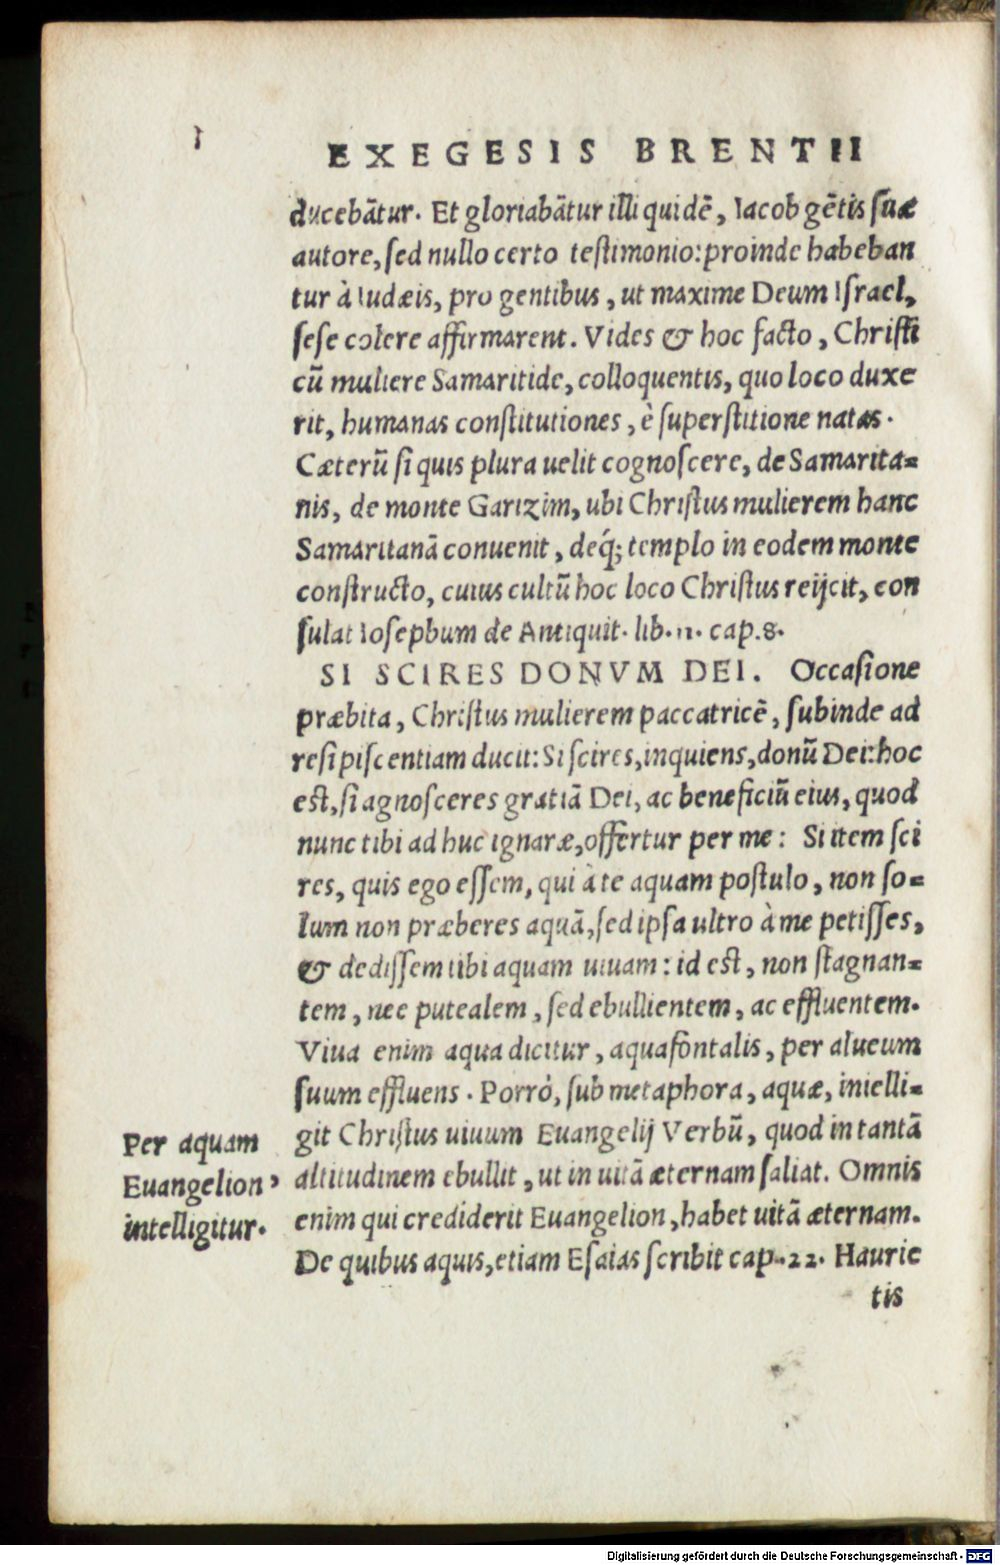 EXEGESIS BRENTII
ducebãtur. Et gloriabãtur illi quidẽ, Iacob gẽtis suæ
autore, sed nullo certo testimonio: proinde habeban
tur à Iudæis, pro gentibus, ut maxime Deum Israel,
sese colere affirmarent. Vides & hoc facto, Christi
cũ muliere Samaritide, colloquentis, quo loco duxe
rit, humanas constitutiones, è superstitione natas.
Cæterũ si quis plura uelit cognoscere, de Samarita=
nis, de monte Garizim, ubi Christus mulierem hanc
Samaritanã conuenit, deq́; templo in eodem monte
constructo, cuius cultũ hoc loco Christus reijcit, con
sulat Iosephum de Antiquit. lib. 11. cap. 8.
SI SCIRES DONVM DEI. Occasione
præbita, Christus mulierem paccatricẽ, subinde ad
resipiscentiam ducit: Si scires, inquiens, donũ Dei: hoc
est, si agnosceres gratiã Dei, ac beneficiũ eius, quod
nunc tibi ad huc ignaræ, offertur per me: Si item sci
res, quis ego essem, qui à te aquam postulo, non so=
lum non præberes aquã, sed ipsa ultro à me petisses,
& dedissem tibi aquam uiuam: id est, non stagnan=
tem, nec putealem, sed ebullientem, ac effluentem.
Viua enim aqua dicitur, aqua fontalis, per alueum
suum effluens. Porrò, sub metaphora, aquæ, intelli=
git Christus uiuum Euangelij Verbũ, quod in tantã
altitudinem ebullit, ut in uitã æternam saliat. Omnis
enim qui crediderit Euangelion, habet uitã æternam.
De quibus aquis, etiam Esaias scribit cap. 22. Haurie
tis
Per aquam
Euangelion
intelligitur.
Digitalisierung gefördert durch die Deutsche Forschungsgemeinschaft - DFG